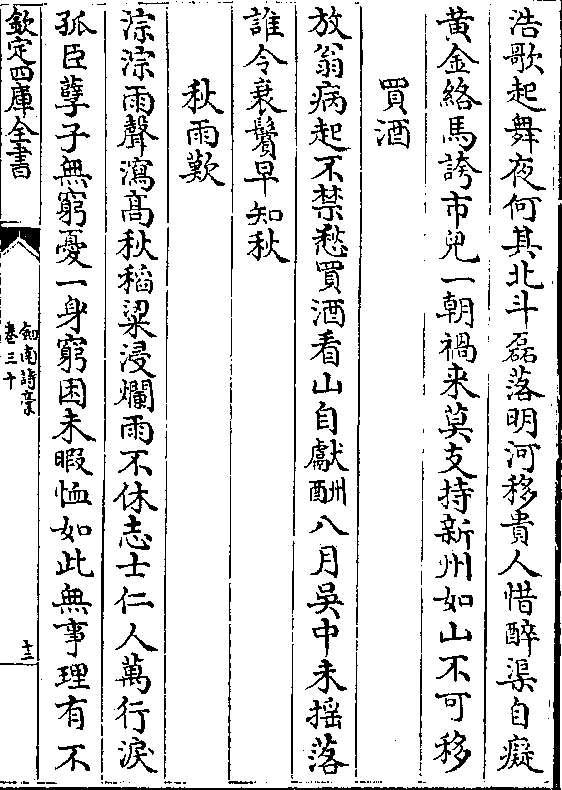 浩歌起舞夜何其北斗磊落明河移貴人惜醉渠自癡
黄金絡馬誇市兒一朝禍来莫支持新州如山不可移
買酒
放翁病起不禁愁買酒看山自獻酬八月吳中未揺落
誰令衰鬢早知秋
秋雨歎
淙淙雨聲瀉髙秋稻粱浸爛雨不休志士仁人萬行淚
孤臣孽子無窮憂一身窮困未暇恤如此無事理有不
欽定四庫全書
劍南詩稾
卷三十
十三